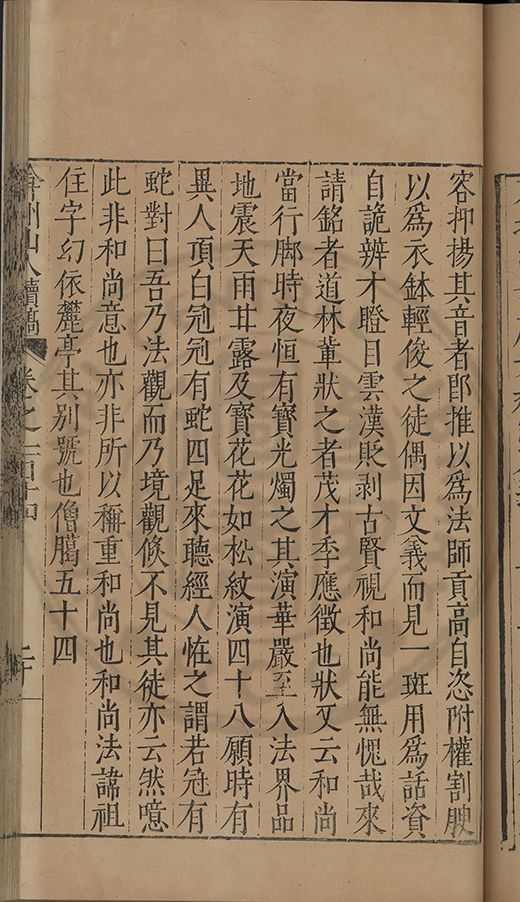 容抑揚其音者郎推以爲法師貢高自恣附權割腴
以爲衣鉢輕俊之徒偶因文義而見一斑用爲話資
自詭辨才瞪目雲漢貶剥古賢視和尚能無愧哉來
請銘者道林輩狀之者茂才李應徵也狀又云和尚
當行脚時夜恒有寳光燭之其演華嚴至入法界品
地震天雨甘露及寳花花如松紋演四十八願時有
異人頂白冠冠有蛇四足來聽經人恠之謂若冠有
蛇對曰吾乃法觀而乃境觀倐不見其徒亦云然噫
此非和尚意也亦非所以稱重和尚也和尚法諱祖
住字幻依麓亭其别號也僧臈五十四
弇州山人續稿 卷之一百十四 二十